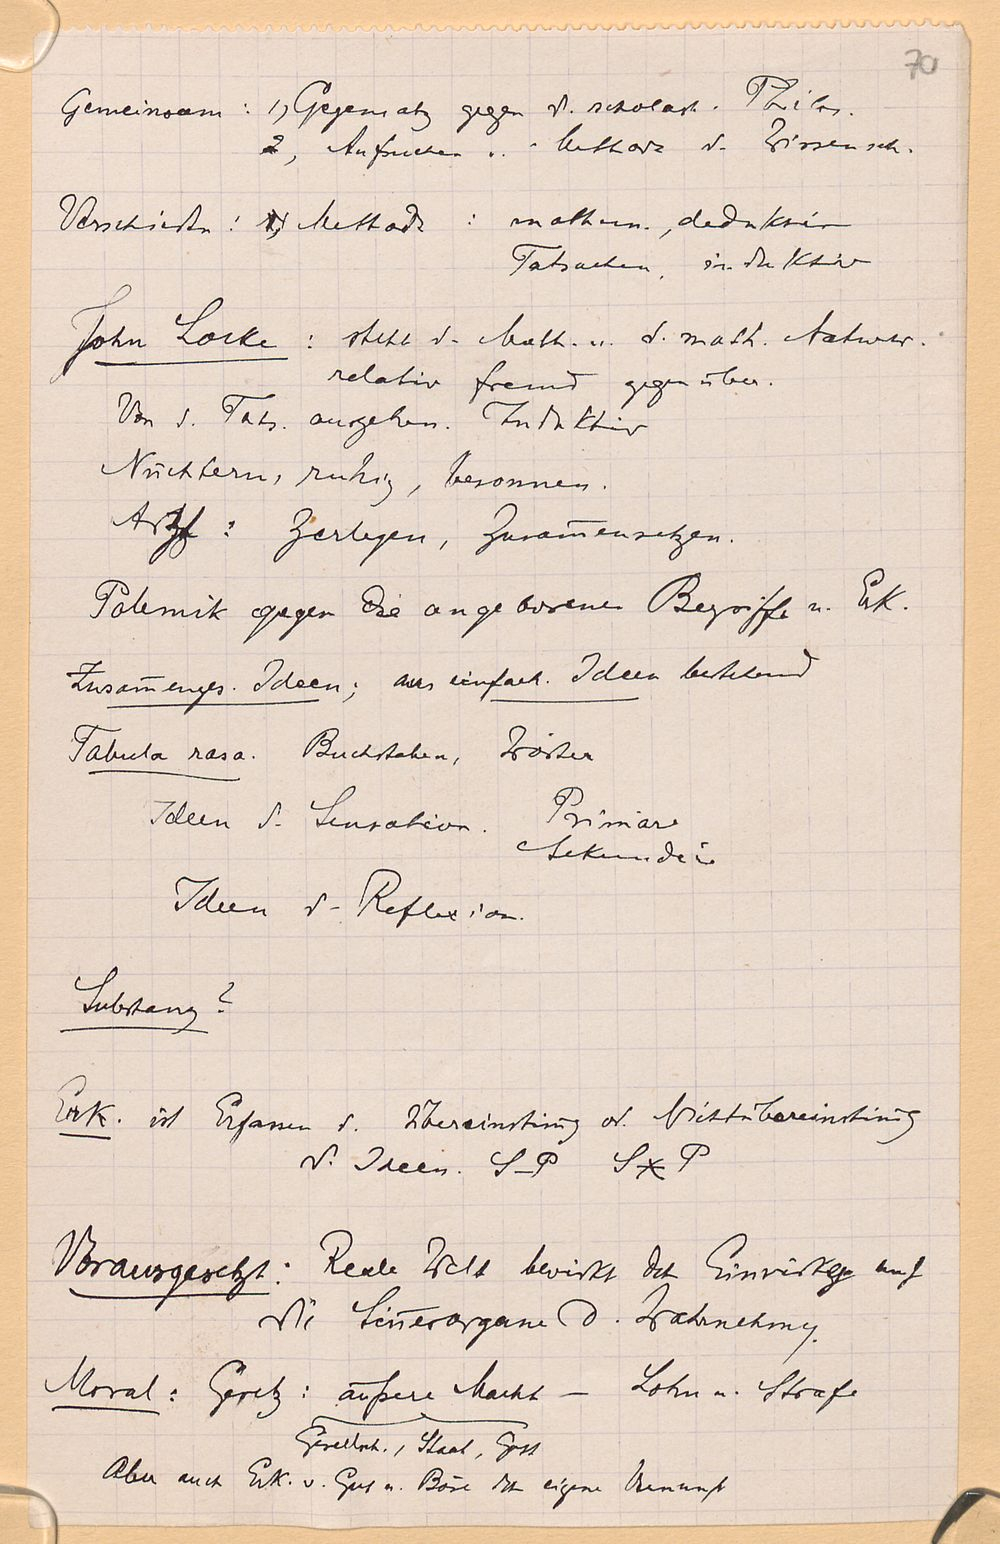 70
Gemeinsam : 1, Gegensatz gegen d. scholast. Philos.
2, Aufsuchen . . Methode d. Wissensch.
Verschieden : 1, Methode : mathem., deduktiv
Tatsachen, induktiv
John Locke : steht d. Math. u. d. math. Naturw.
relativ fremd gegenüber.
Von d. Tats. ausgehen. Induktiv
Nüchtern, ruhig, besonnen.
Arzt : Zerlegen, Zusam̄ensetzen.
Polemik gegen die angeborenen Begriffe u. Erk.
Zusam̄enges. Ideen; aus einfach. Ideen bestehend
Tabula rasa. Buchstaben, Wörter
Ideen d. Sensation. Primäre
Sekundäre
Ideen d. Reflexion.
Substanz?
Erk. ist Erfassen d. Übereinstim̄g od. Nichtübereinstim̄g
d. Ideen. S–P S x P
Vorausgesetzt: Reale Welt bewirkt dch Einwirkg auf
die Sin̄esorgane d. Wahrnehmg.
Moral : Gesetz : äußere Macht — Lohn u. Strafe
Gesellsch., Staat, Gott
Aber auch Erk. v. Gut u. Böse dch eigene Vernunft